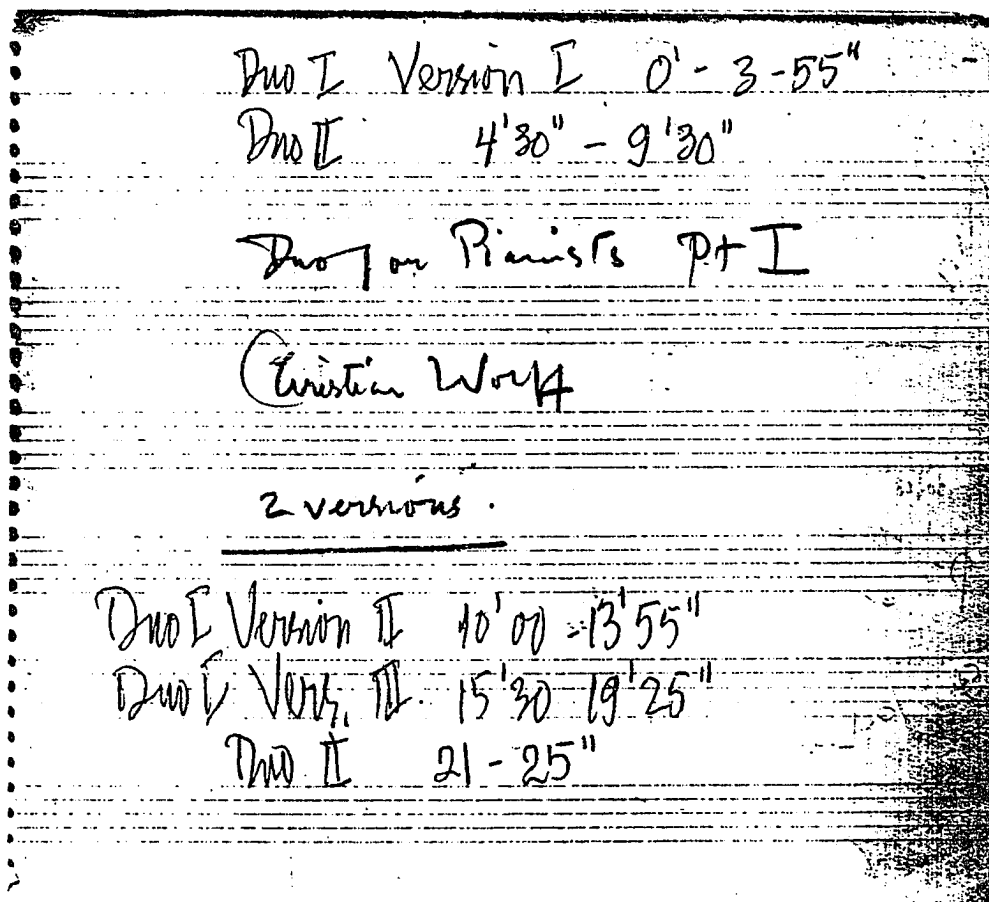 Duo I Version I 0' - 3-55"
Duo II 4'30" - 9'30"
Duo for Pianists Pt I
Christian Wolff
2 versions.
Duo I Version II 10'00 - 13'55"
Duo I Vers. III. 15'30 19'25"
Duo II 21 - 25"